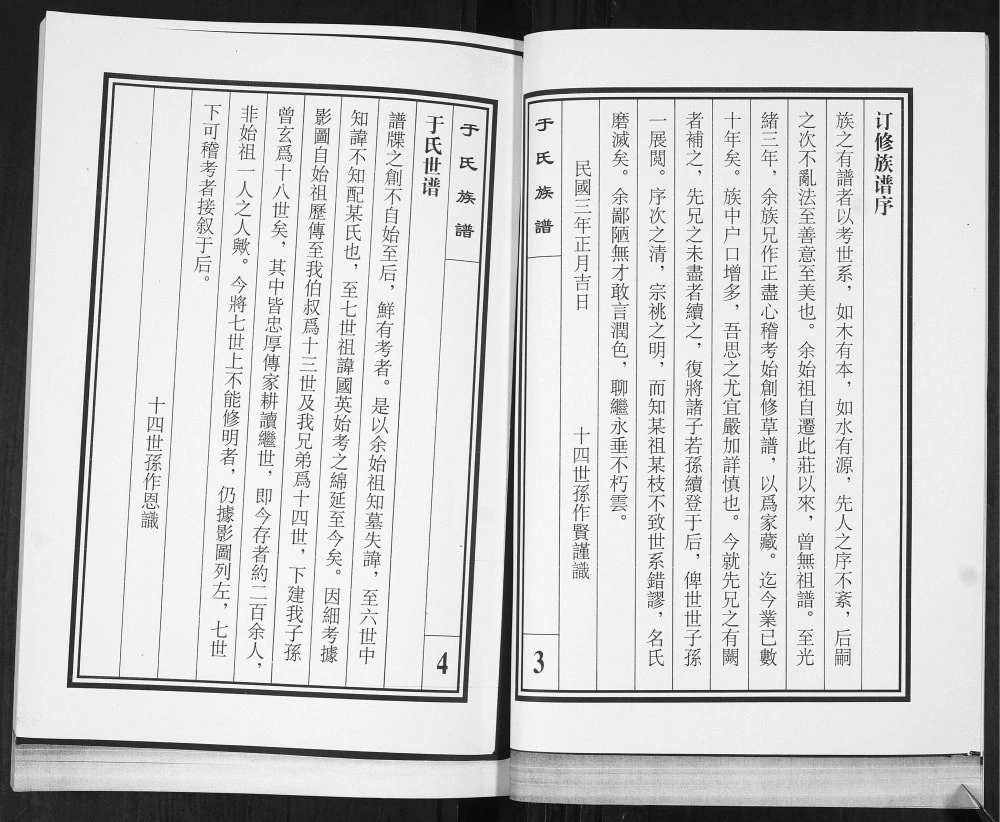 订修族谱序
族之有譜者以考世系，如木有本，如水有源，先人之序不紊，后嗣
之次不亂法至善意至美也。余始祖自遷此莊以來，曾無祖譜。至光
緒三年，余族兄作正盡心稽考始創修草譜，以爲家藏。迄今業已數
十年矣。族中户口增多，吾思之尤宜嚴加詳慎也。今就先兄之有闕
者補之，先兄之未盡者續之，復將諸子若孫續登于后，俾世世子孫
一展閲。序次之清，宗祧之明，而知某祖某枝不致世系錯謬，名氏
磨滅矣。余鄙陋無才敢言潤色，聊繼永垂不朽雲。
民國三年正月吉日 十四世孫作賢謹識
于氏族譜
3
于氏族譜
4
于氏世谱
譜牒之創不自始至后，鮮有考者。是以余始祖知墓失諱，至六世中
知諱不知配某氏也，至七世祖諱國英始考之綿延至今矣。因細考據
影圖自始祖歷傳至我伯叔爲十三世及我兄弟爲十四世，下建我子孫
曾玄爲十八世矣，其中皆忠厚傳家耕讀繼世，即今存者約二百余人，
非始祖一人之人歟。今將七世上不能修明者，仍據影圖列左，七世
下可稽考者接叙于后。
十四世孫作恩識